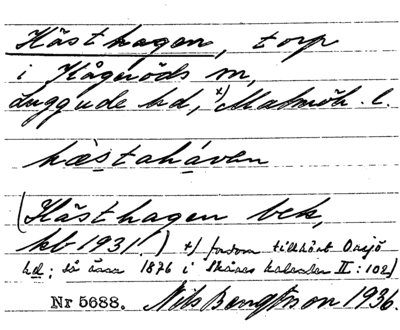 Hästhagen, torp
i Kågeröds sn,
Luggude hd, x) Malmöh. l.
hästaháven
(Hästhagen bek,
kb 1931.) x) fordom tillhört Onsjö
hd; så ännu 1876 i Skånes kalender II:102)
Nr 5688. Nils Bengtsson 1936.